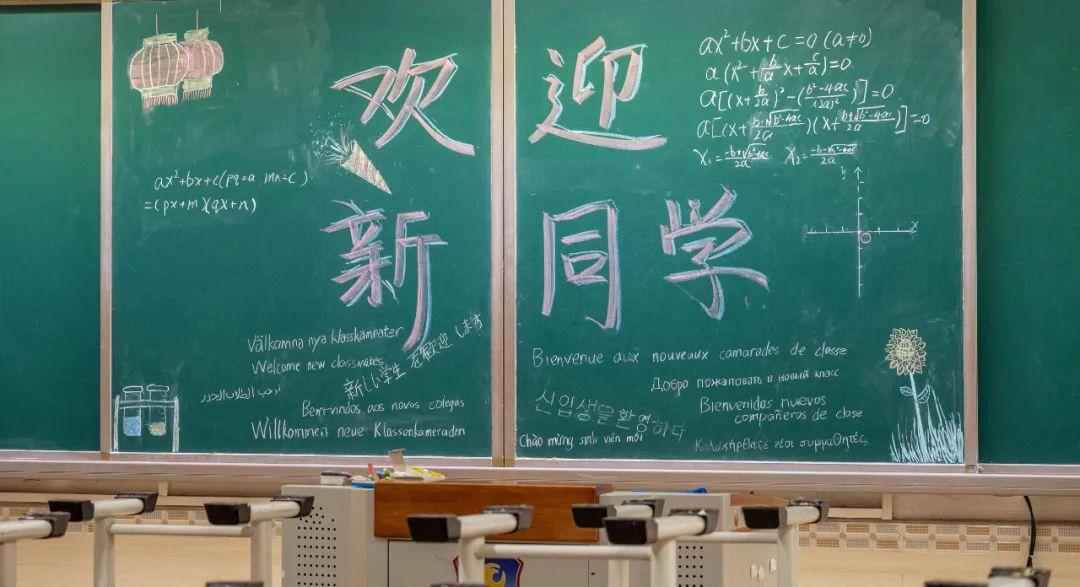 欢迎
新同学
ax²+bx+c(pq=a mn=c)
=(px+m)(qx+n)
ax²+bx+c=0(a≠0)
a(x²+b/a x+c/a)=0
a[(x+b/2a)²-(b²-4ac/(2a)²)]=0
a[(x+b-√b²-4ac/2a)(x+b+√b²-4ac/2a)]=0
x₁=-b+√b²-4ac/2a x₂=-b-√b²-4ac/2a
y
x
Välkomna nya klasskamrater
Welcome new classmates
新しい学生を歓迎します
نرحب الطلاب الجدد
Bem-vindos aos novos colegas
Willkommen neue Klassenkameraden
Bienvenue aux nouveaux camarades de classe
Добро пожаловать в новый класс
신입생을 환영하다
Bienvenidos nuevos
compañeros de clase
Chào mừng sinh viên mới
νέοι συμμαθητές